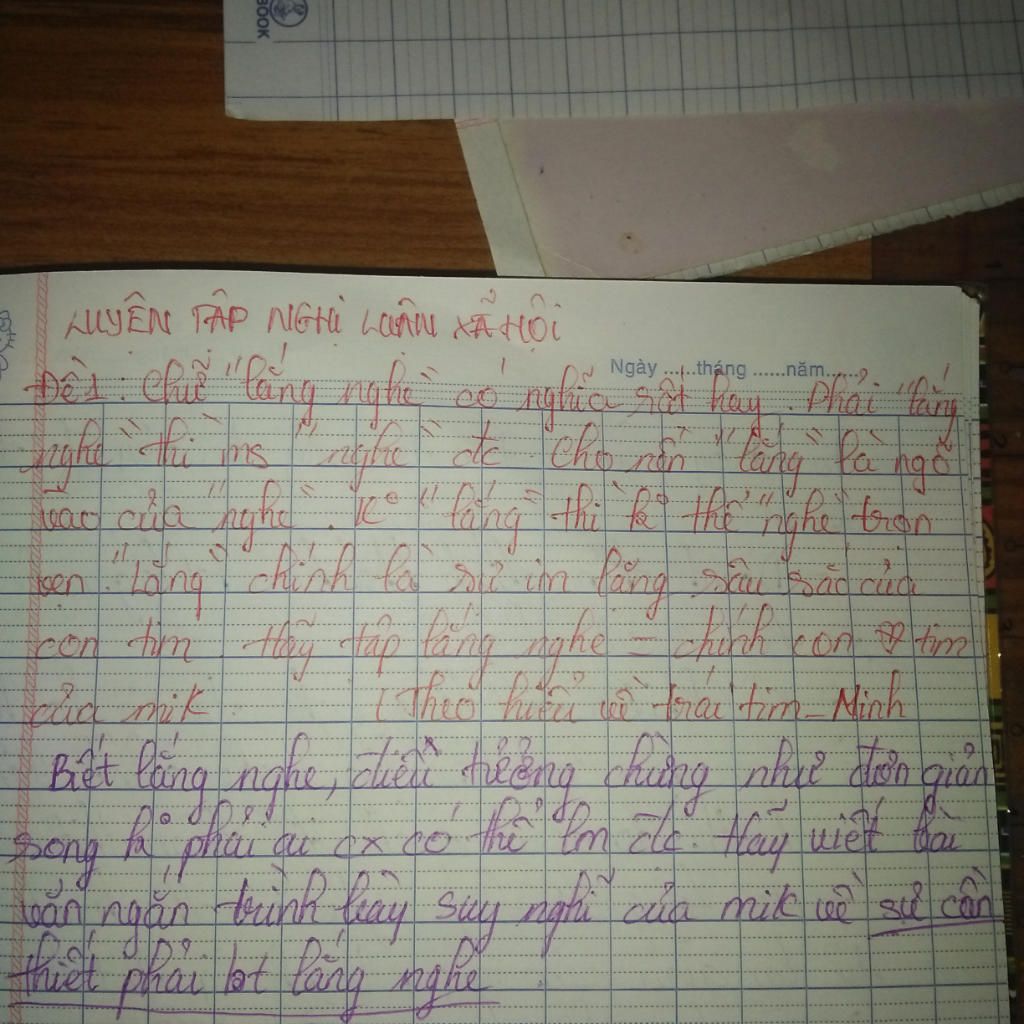 BOOK
LUYỆN TẬP NGHỊ LUẬN XÃ HỘI
Ngày ......tháng ......năm......
Đề1: Chữ "lắng nghe" có nghĩa rất hay. Phải "lắng
nghe" thì ms "nghe" đc. Cho nên "lắng" là ngõ
vào của "nghe". Ko "lắng" thì k thể "nghe" trọn
vẹn. "Lắng" chính là sự im lắng sâu sắc của
con tim. Hãy tập lắng nghe = chính con tim
của mik. (Theo hiểu về trái tim_Minh
Biết lắng nghe, điều tưởng chừng như đơn giản
song k phải ai cx có thể lm đc. Hãy viết bài
văn ngắn trình bày suy nghĩ của mik về sự cần
thiết phải bt lắng nghe.